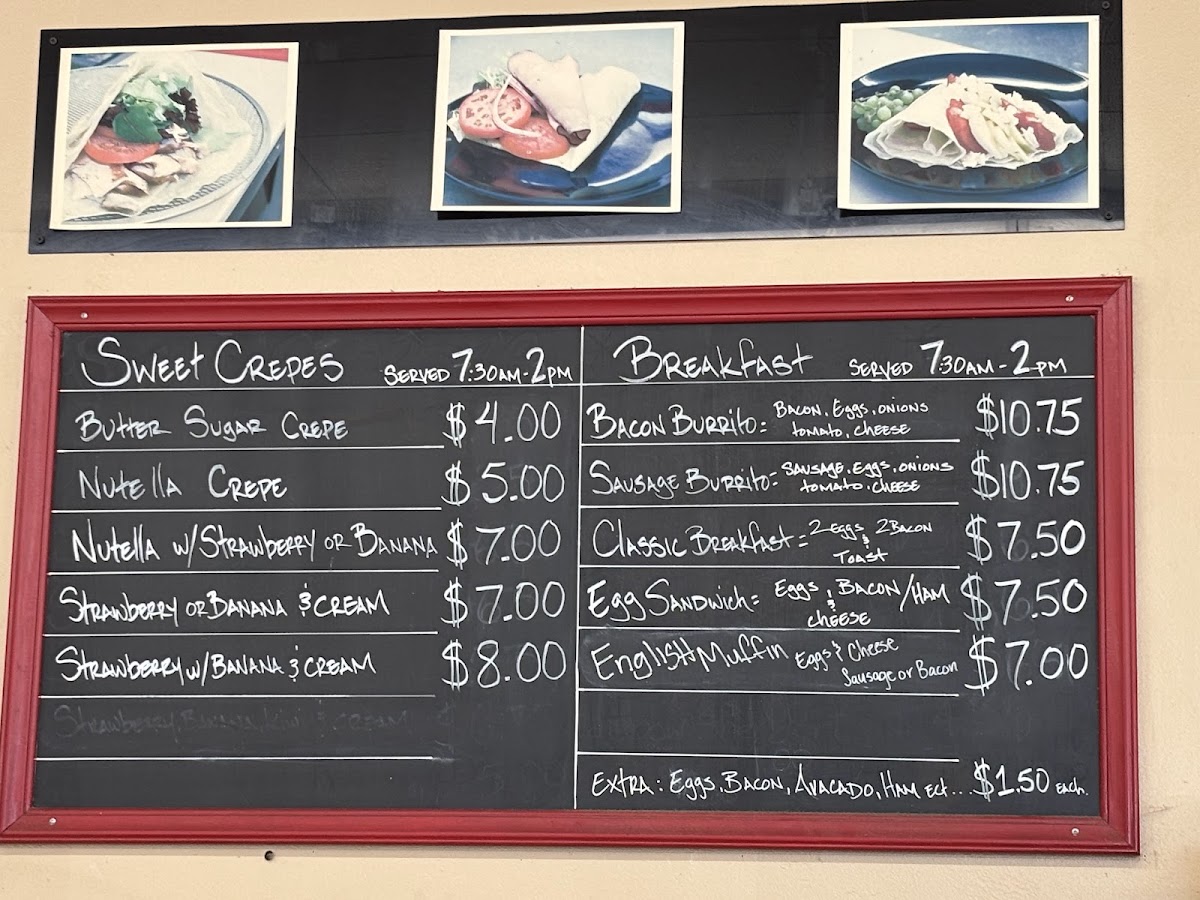 Sweet Crepes Served 7:30am-2pm
Butter Sugar Crepe $4.00
Nutella Crepe $5.00
Nutella w/Strawberry or Banana $7.00
Strawberry or Banana & Cream $7.00
Strawberry w/Banana & Cream $8.00
Strawberry, Banana, Kiwi & Cream
Breakfast Served 7:30am-2pm
Bacon Burrito= Bacon, Eggs, onions $10.75
tomato, cheese
Sausage Burrito= Sausage, Eggs, onions $10.75
tomato, cheese
Classic Breakfast= 2 eggs 2 Bacon $7.50
& Toast
Egg Sandwich= Eggs, Bacon/Ham $7.50
& cheese
English Muffin Eggs & Cheese $7.00
Sausage or Bacon
Extra: Eggs, Bacon, Avacado, Ham ect... $1.50 each.